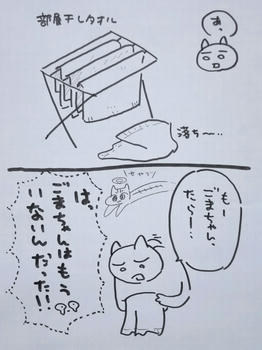 部屋干しタオル
あっ
落ち〜‥
もー
ごまちゃん
たら…
はっ
ごまちゃんはもう
いないんだった!!